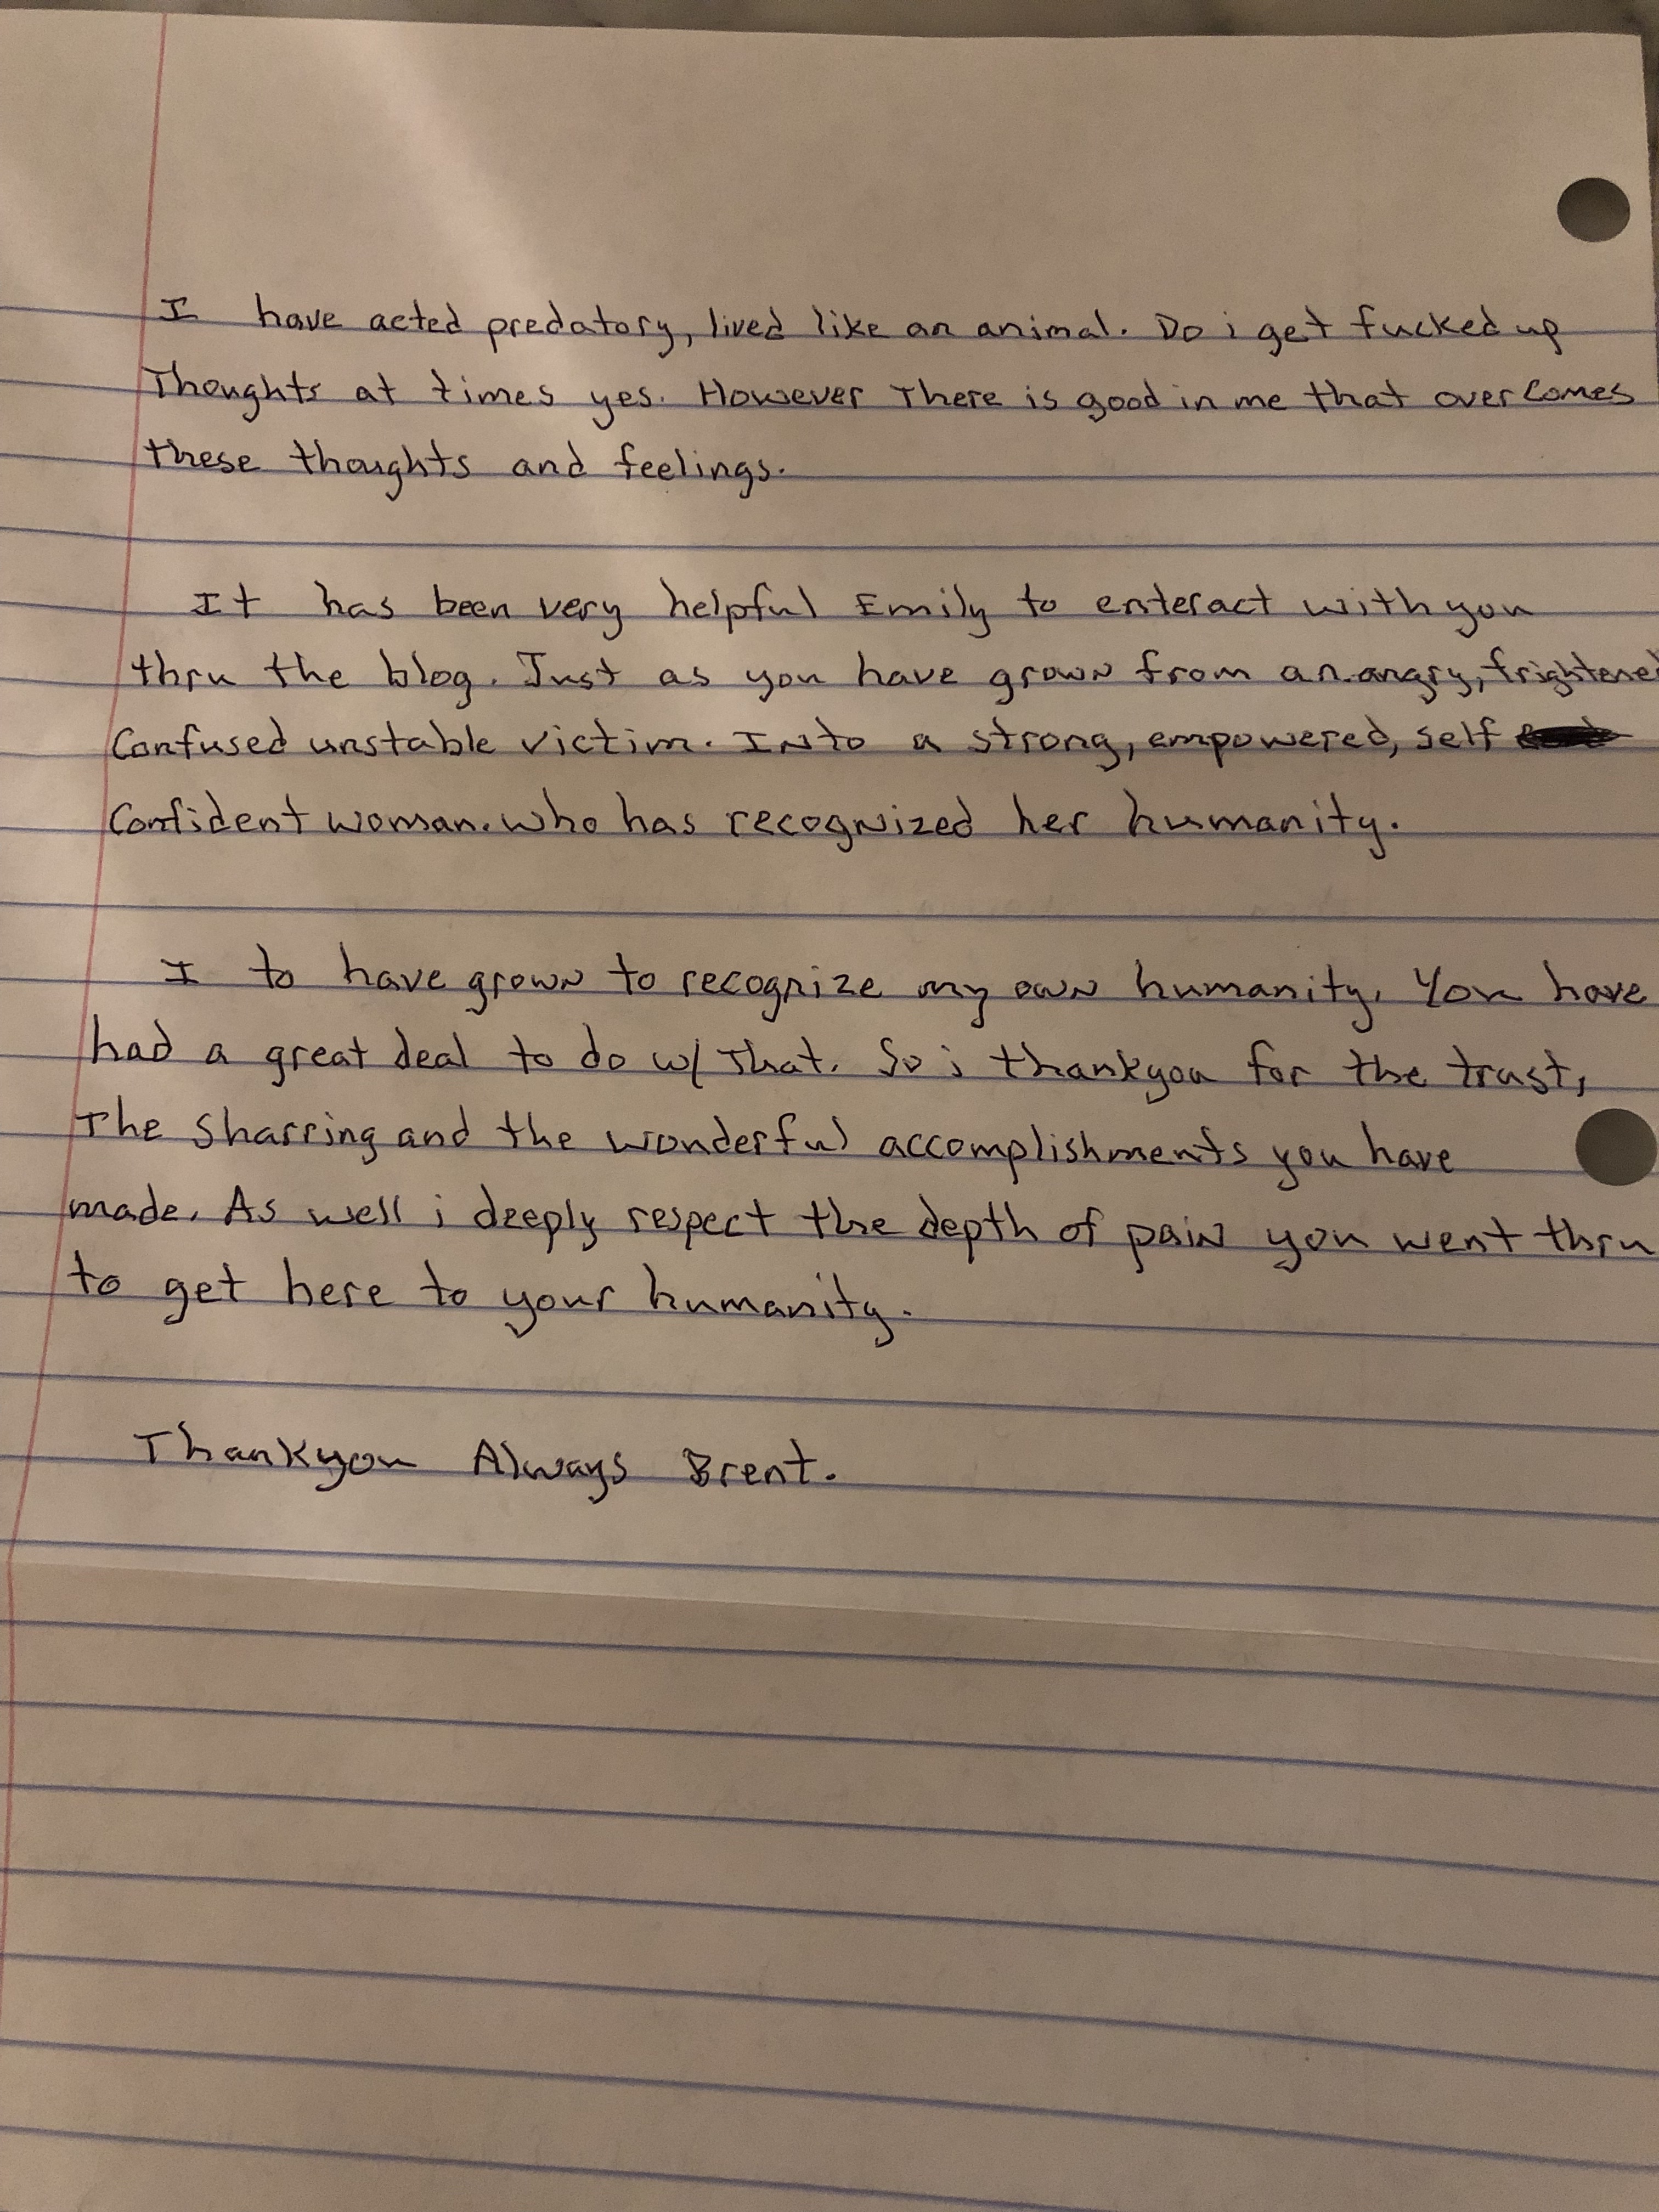 I have acted predatory, lived like an animal. Do i get fucked up
Thoughts at times yes. However There is good in me that overcomes
these thoughts and feelings.
It has been very helpful Emily to enteract with you
thru the blog. Just as you have grown from an angry, frightened
Confused unstable victim. INto a strong, empowered, self
Confident woman. who has recogNized her humanity.
I to have grown to recognize my own humanity. You have
had a great deal to do w/ That. So i thankyou for the trust,
The Sharring and the wonderful accomplishments you have
made. As well i deeply respect the depth of paiN you went thru
to get here to your humanity.
Thankyou Always Brent.